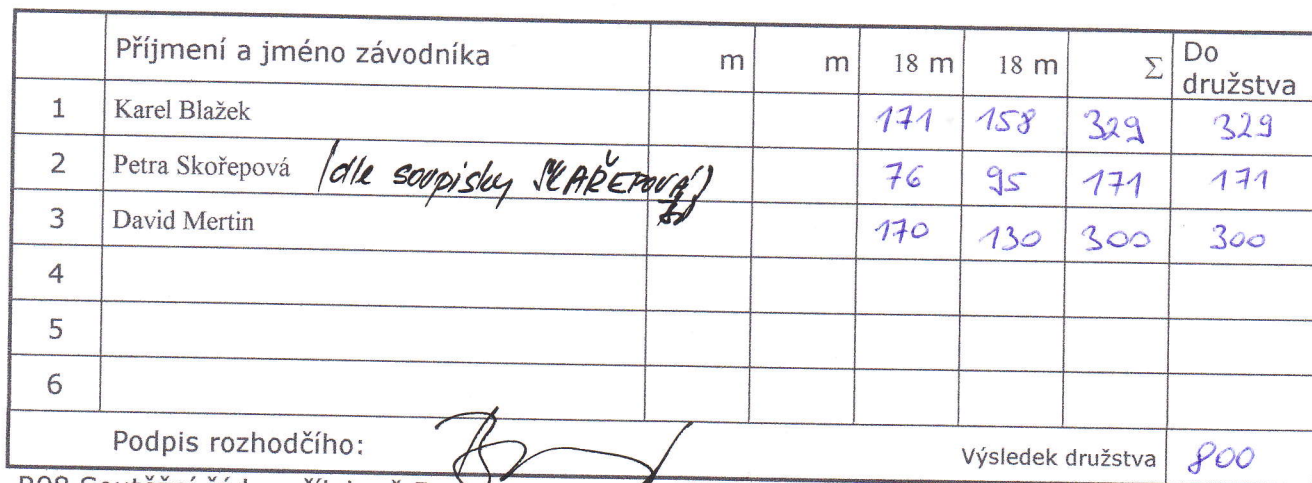 Příjmení a jméno závodníka m m 18 m 18 m Σ Do družstva
1 Karel Blažek 171 158 329 329
2 Petra Skořepová (dle soupisky SKAŘEPOVÁ) 76 95 171 171
3 David Mertin 170 130 300 300
4
5
6
Podpis rozhodčího: Výsledek družstva 800